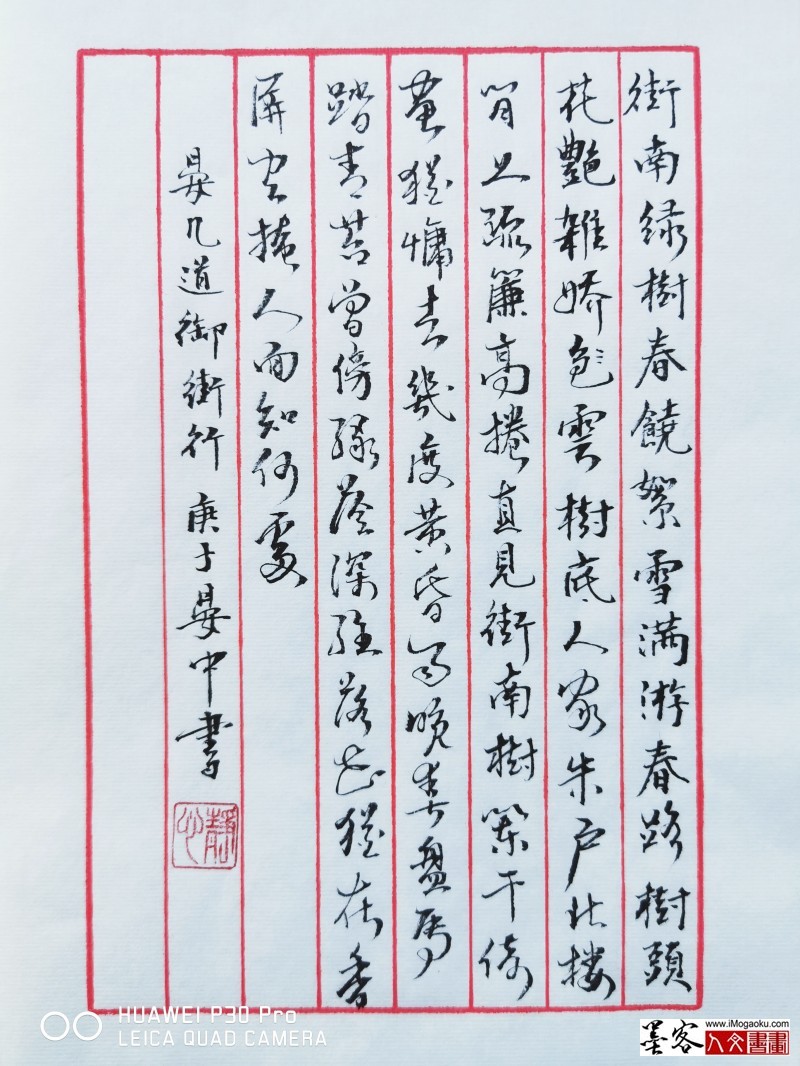 街南绿樹春饒絮雪满游春路樹頭
花艷雜嬌雲樹底人家朱户北楼
闲上疏簾高捲直見街南樹闌干倚
盡猶慵去幾度黄昏雨晚春盤馬
踏青苔曾傍绿蔭深驻落花猶在香
屏空掩人面知何處
晏几道御街行 庚子晏中書
靜心
HUAWEI P30 Pro
LEICA QUAD CAMERA
墨客
www.iMogaoku.com
人文書畫